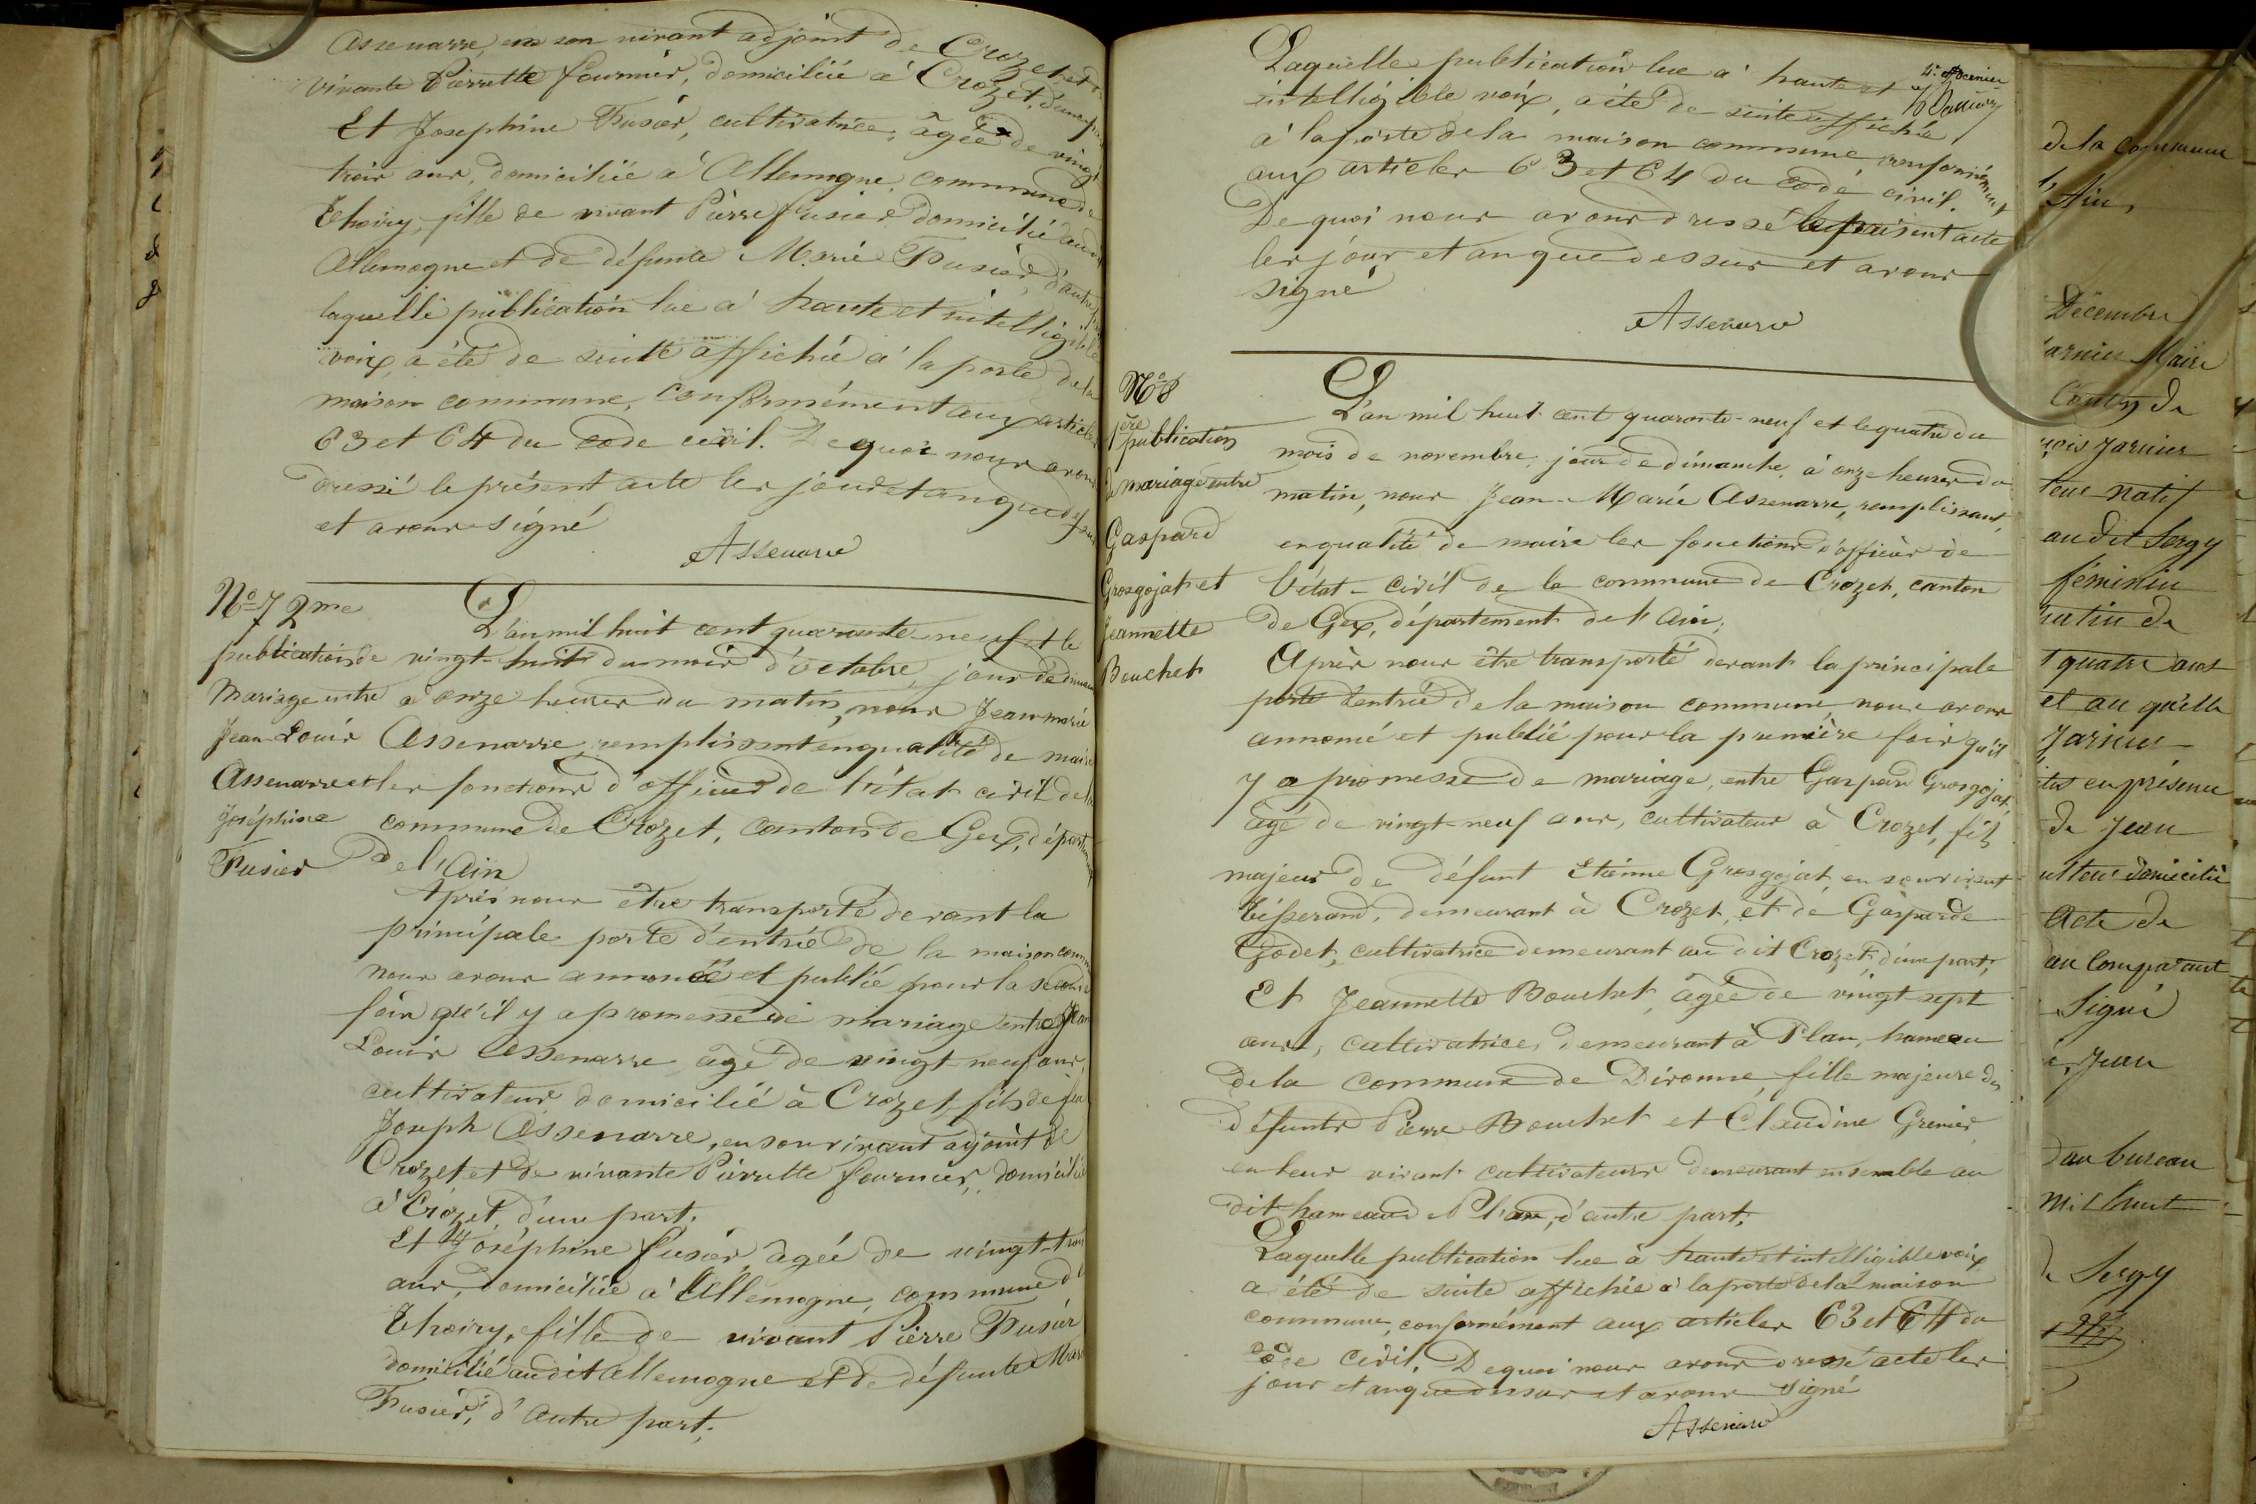 Assenarre, en son vivant adjoint de Crozet et de
vivante Pierrette fournier, domiciliée à Crozet, d'une part
Et Josephine Fusier, cultivatrice, âgée de vingt
trois ans, domiciliée à Allemogne, commune de
Thoiry, fille de vivant Pierre fusier domicilié audit
Allemogne et de défunte Marie Fusier, d'autre part
laquelle publication lue à haute et intelligible
voix, a été de suite affichée à la porte de la
maison commune, conformément aux articles
63 et 64 du code civil. De quoi nous avons
dressé le présent acte les jour et an que dessus
et avons signé
Assenarre
N.° 7 2me
publication de
Mariage entre
Jean Louis
Assenarre et
Joséphine
Fusier
L'an mil huit cent quarante-neuf et le
vingt-huit du mois d'octobre, jour de dimanche
à onze heures du matin, nous Jean marie
Assenarre, remplissant en qualité de maire
les fonctions d'officier de l'état civil de la
commune de Crozet, canton de Gex, département
de l'Ain
Après nous être transporté devant la
principale porte d'entrée de la maison commune
nous avons annoncé et publié pour la seconde
fois qu'il y a promesse de mariage entre Jean
Louis Assenarre âgé de vingt neuf ans,
cultivateur domicilié à Crozet, fils de feu
Joseph Assenarre, en son vivant adjoint de
Crozet et de vivante Pierrette fournier, domiciliée
à Crozet, d'une part.
Et Joséphine fusier, agée de vingt-trois
ans, domiciliée à Allemogne, commune de
Thoiry, fille de vivant Pierre Fusier
domicilié audit Allemogne et de défunte Marie
Fusier, d'autre part,
Laquelle publication lue à haute et
intelligible voix, a été de suite affichée
à la porte de la maison commune conformément
aux articles 63 et 64 du code civil.
De quoi nous avons dressé le présent acte
les jour et an que dessus et avons
signé
Assenarre
N.° 8
1ère
publication
de mariage entre
Gaspard
Grosgojat et
Jeannette
Bouchet
L'an mil huit cent quarante-neuf et le quatre du
mois de novembre, jour de dimanche, à onze heures du
matin, nous Jean-Marie Assenarre, remplissant
en qualité de maire les fonctions d'officier de
l'état-civil de la commune de Crozet, canton
de Gex, département de l'Ain,
Après nous être transporté devant la principale
porte d'entrée de la maison commune, nous avons
annoncé et publié pour la première fois qu'il
y a promesse de mariage, entre Gaspard Grosgojat,
âgé de vingt-neuf ans, cultivateur à Crozet, fils
majeur de défunt Etienne Grosgojat, en son vivant
tisserand, demeurant à Crozet, et de Gasparde
Godet, cultivatrice demeurant au dit Crozet, d'une part,
Et Jeannette Bouchet, âgée de vingt-sept
ans, cultivatrice, demeurant à Plan, hameau
de la commune de Divonne, fille majeure des
défunts Pierre Bouchet et Claudine Grenier
en leur vivant cultivateurs demeurant ensemble au
dit hameau de Plan, d'autre part,
Laquelle publication lue à haute et intelligible voix
a été de suite affichée à la porte de la maison
commune, conformément aux articles 63 et 64 du
code civil. De quoi nous avons dressé acte les
jour et an que dessus et avons signé
Assenarre
de la Commune
l'Ain,
Décembre
Maire
Canton de
natif
audit Sergy
féminin
matin de
quatre ans
et au qu'elle
en présence
de Jean
domicilié
Acte de
au Comparant
Signé
Jean
au bureau
Mil huit
de Sergy